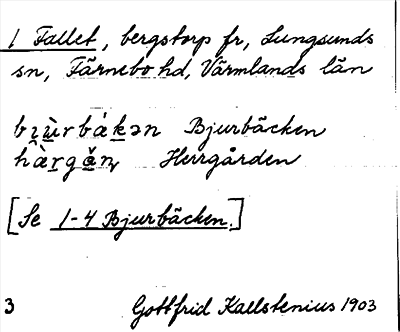 1 Fallet, bergstorp fr, Lungsunds
sn, Färnebo hd, Värmlands län
Bjurbäcken
Herrgården
[Se 1-4 Bjurbäcken.]
3 Gottfrid Kallstenius 1903